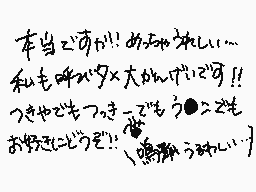 本当ですか!! めっちゃうれしい…
私も呼びタメ大かんげいです!!
つきやでもつっきーでもう●こでも
お好きにどうぞ!!